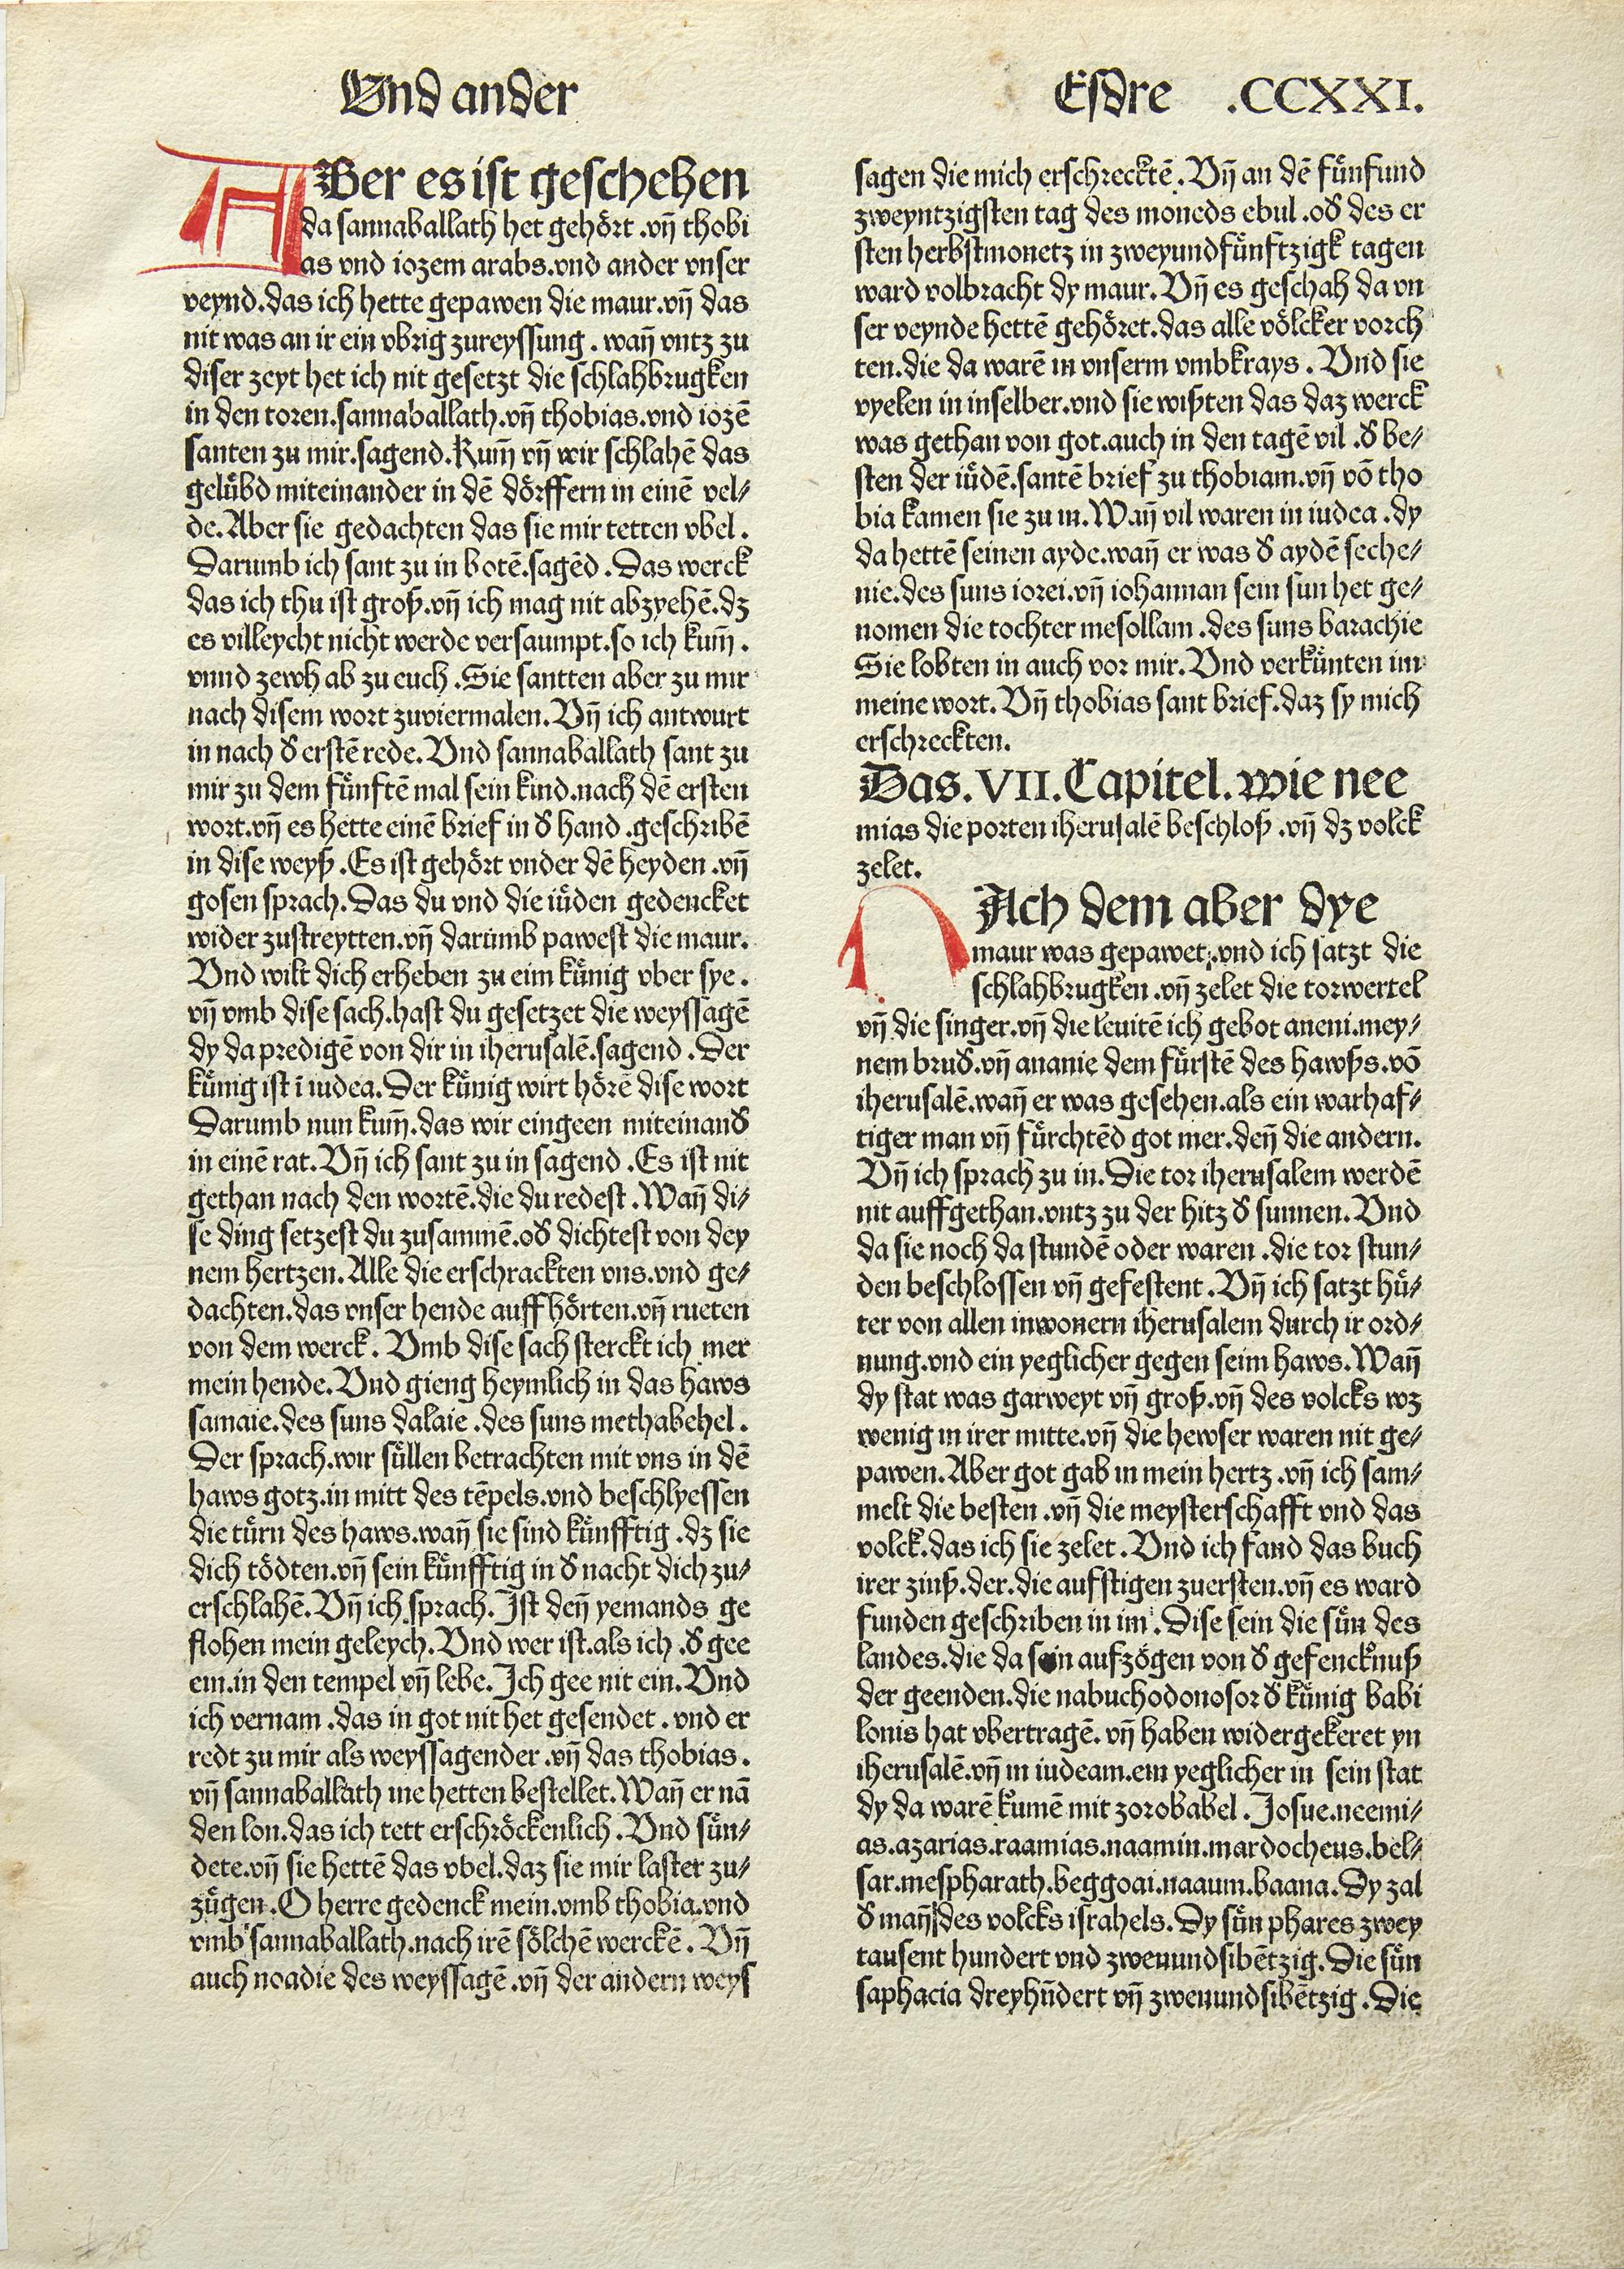 Vnd ander
Esdre .CCXXI.
ABer es ist geschehen
da sannaballath het gehört .vn̄ thobi
as vnd iozem arabs.vnd ander vnser
veynd.das ich hette gepawen die maur.vn̄ das
nit was an ir ein vbrig zureyssung . wan̄ vntz zu
diser zeyt het ich nit gesetzt die schlahbrugken
in den toren.sannaballath.vn̄ thobias.vnd iozē
santen zu mir.sagend.Kum̄ vn̄ wir schlahē das
gelübd miteinander in dē dörffern in einē vel⸗
de.Aber sie gedachten das sie mir tetten vbel .
Darumb ich sant zu in botē.sagēd . Das werck
das ich thu ist groß.vn̄ ich mag nit abzyehē.dz
es villeycht nicht werde versaumpt.so ich kum̄ .
vnnd zewh ab zu euch .Sie santten aber zu mir
nach disem wort zuviermalen. Vn̄ ich antwurt
in nach d̕ erstē rede. Vnd sannaballath sant zu
mir zu dem fünftē mal sein kind.nach dē ersten
wort.vn̄ es hette einē brief in d̕ hand .geschribē
in dise weyß .Es ist gehört vnder dē heyden .vn̄
gosen sprach. Das du vnd die iüden gedencket
wider zustreytten.vn̄ darumb pawest die maur.
Vnd wilt dich erheben zu eim künig vber sye .
vn̄ vmb dise sach.hast du gesetzet die weyssagē
dy da predigē von dir in iherusalē.sagend . Der
künig ist ī iudea. Der künig wirt hörē dise wort
Darumb nun kum̄.das wir eingeen miteinand̕
in einē rat. Vn̄ ich sant zu in sagend .Es ist nit
gethan nach den wortē.die du redest . Wan̄ di⸗
se ding setzest du zusammē.od̕ dichtest von dey
nem hertzen. Alle die erschrackten vns.vnd ge⸗
dachten.das vnser hende auffhörten.vn̄ rueten
von dem werck . Vmb dise sach sterckt ich mer
mein hende. Vnd gieng heymlich in das haws
samaie.des suns dalaie .des suns methabehel .
Der sprach.wir süllen betrachten mit vns in dē
haws gotz.in mitt des tēpels.vnd beschlyessen
die türn des haws.wan̄ sie sind künfftig .dz sie
dich tödten.vn̄ sein künfftig in d̕ nacht dich zu⸗
erschlahē. Vn̄ ich sprach. Ist den̄ yemands ge
flohen mein geleych. Vnd wer ist.als ich .d̕ gee
ein.in den tempel vn̄ lebe. Ich gee nit ein. Vnd
ich vernam .das in got nit het gesendet . vnd er
redt zu mir als weyssagender .vn̄ das thobias .
vn̄ sannaballath ine hetten bestellet. Wan̄ er nā
den lon.das ich tett erschröckenlich . Vnd sün⸗
dete.vn̄ sie hettē das vbel.daz sie mir laster zu⸗
zügen .O herre gedenck mein.vmb thobia.vnd
vmb sannaballath.nach irē sölchē werckē . Vn̄
auch noadie des weyssagē .vn̄ der andern weys
sagen die mich erschrecktē . Vn̄ an dē fünfund
zweyntzigsten tag des moneds ebul .od̕ des er
sten herbstmonetz in zweyundfünftzigk tagen
ward volbracht dy maur. Vn̄ es geschah da vn
ser veynde hettē gehöret.das alle völcker vorch
ten.die da warē in vnserm vmbkrays . Vnd sie
vyelen in inselber.vnd sie wißten das daz werck
was gethan von got.auch in den tagē vil .d̕ be⸗
sten der iüdē.santē brief zu thobiam.vn̄ vō tho
bia kamen sie zu in. Wan̄ vil waren in iudea .dy
da hettē seinen ayde.wan̄ er was d̕ aydē seche⸗
nie.des suns iorei.vn̄ iohannan sein sun het ge⸗
nomen die tochter mesollam .des suns barachie
Sie lobten in auch vor mir. Vnd verkünten im
meine wort. Vn̄ thobias sant brief.daz sy mich
erschreckten.
Das. VII. Capitel. wie nee
mias die porten iherusalē beschloß .vn̄ dz volck
zelet.
NAch dem aber dye
maur was gepawet.vnd ich satzt die
schlahbrugken .vn̄ zelet die torwertel
vn̄ die singer.vn̄ die leuitē ich gebot aneni.mey⸗
nem brud̕.vn̄ ananie dem fürstē des hawßs.vō
iherusalē.wan̄ er was gesehen.als ein warhaf⸗
tiger man vn̄ fürchtēd got mer.den̄ die andern.
Vn̄ ich sprach zu in. Die tor iherusalem werdē
nit auffgethan.vntz zu der hitz d̕ sunnen. Vnd
da sie noch da stundē oder waren .die tor stun⸗
den beschlossen vn̄ gefestent . Vn̄ ich satzt hü⸗
ter von allen inwonern iherusalem durch ir ord⸗
nung.vnd ein yeglicher gegen seim haws. Wan̄
dy stat was garweyt vn̄ groß.vn̄ des volcks wz
wenig in irer mitte.vn̄ die hewser waren nit ge⸗
pawen. Aber got gab in mein hertz .vn̄ ich sam⸗
melt die besten .vn̄ die meysterschafft vnd das
volck.das ich sie zelet . Vnd ich fand das buch
irer zinß.der.die aufstigen zuersten.vn̄ es ward
funden geschriben in im . Dise sein die sün des
landes.die da sein aufzögen von d̕ gefencknuß
der geenden.die nabuchodonosor d̕ künig babi
lonis hat vbertragē. vn̄ haben widergekeret yn
iherusalē.vn̄ in iudeam.ein yeglicher in sein stat
dy da warē kumē mit zorobabel . Josue.neemi⸗
as.azarias.raamias.naamin.mardocheus.bel⸗
sar.mespharath.beggoai.naaum.baana. Dy zal
d̕ man̄ des volcks israhels. Dy sün phares zwey
tausent hundert vnd zwenundsibētzig. Die sün
saphacia dreyhūdert vn̄ zwenundsibētzig . Die